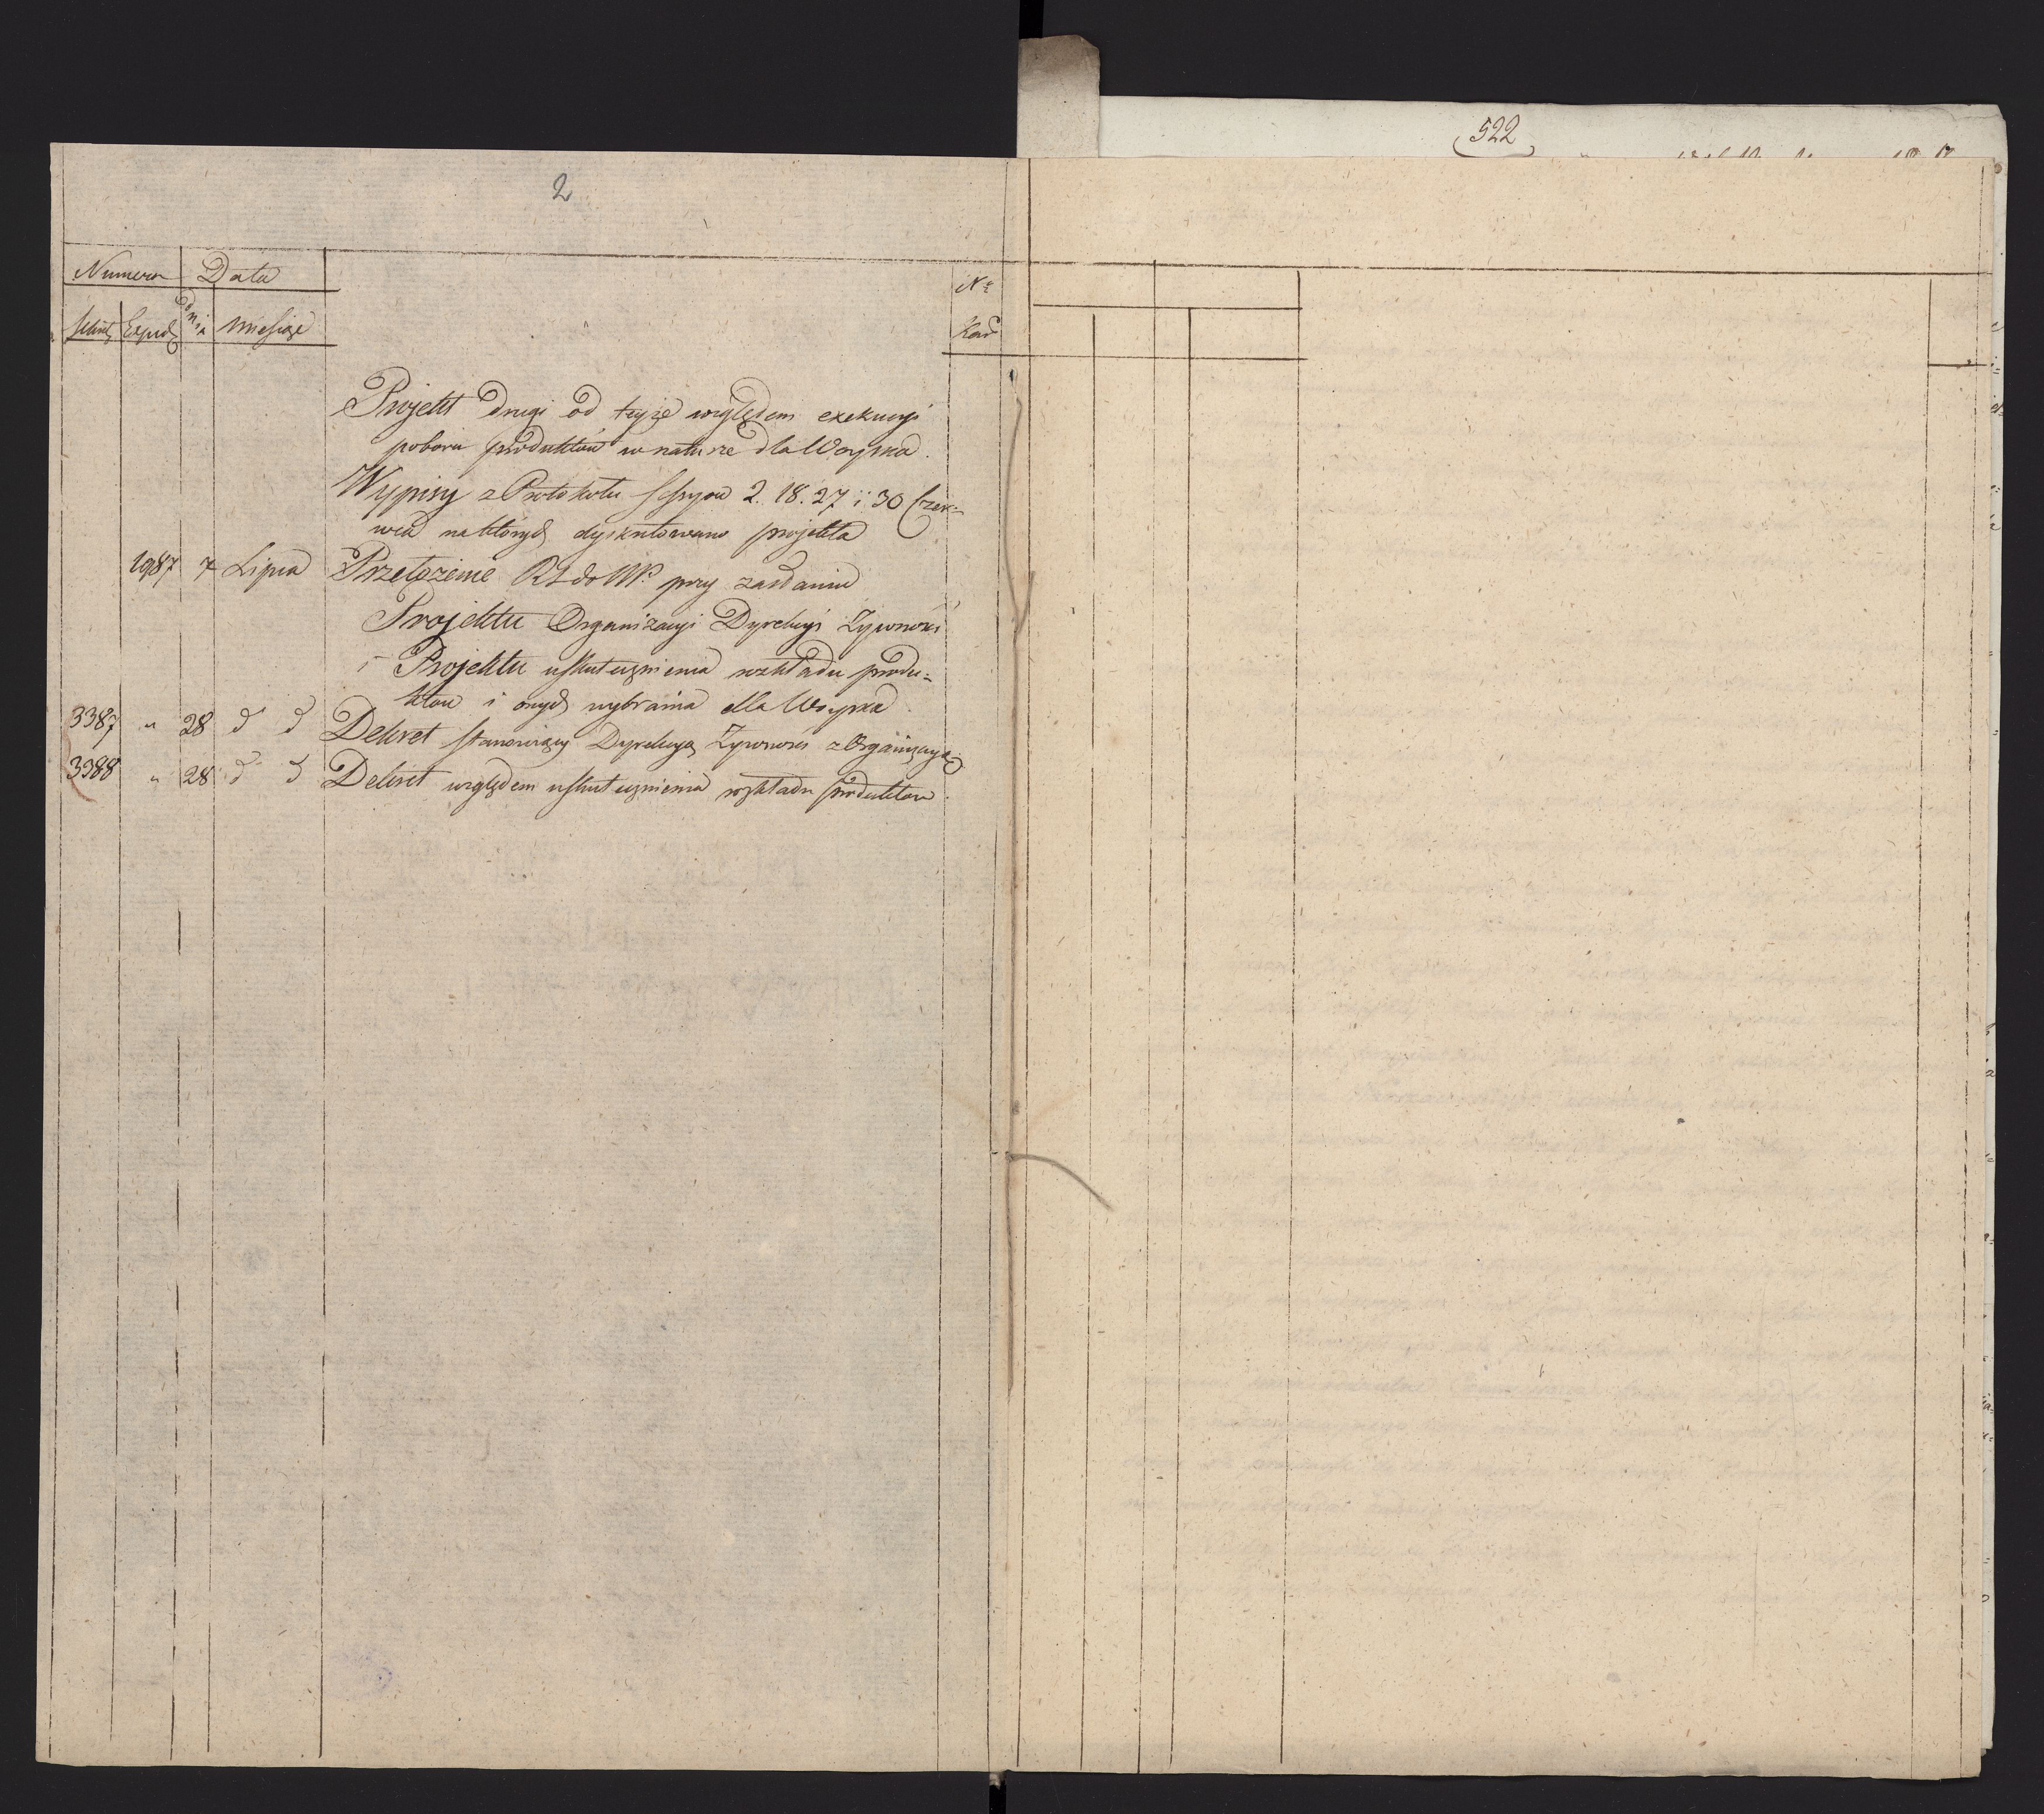 522
2
Numera Data Nr
Exped dnia miesiąc Kart
Projekt drugi od tejże względem exekucyi
poboru produktów w naturze dla Woyska.
Wypisy z Protokołu Sessyow 2. 18. 27 i 30 Czer-
wca na których dyskutowano projekta
1987 7 Lipca Przełożenie RS do NP. przy zasłaniu
Projektu Organizacyi Dyrekcyi Żywności
i Projektu uskutecznienia rozkładu produ=
któw i onych wybrania dla Woyska.
3387 " 28 d d Dekret stanowiący Dyrekcyą Żywności z Organizacyą
3388 " 28 d d Dekret względem uskutecznienia rozkładu produktów.